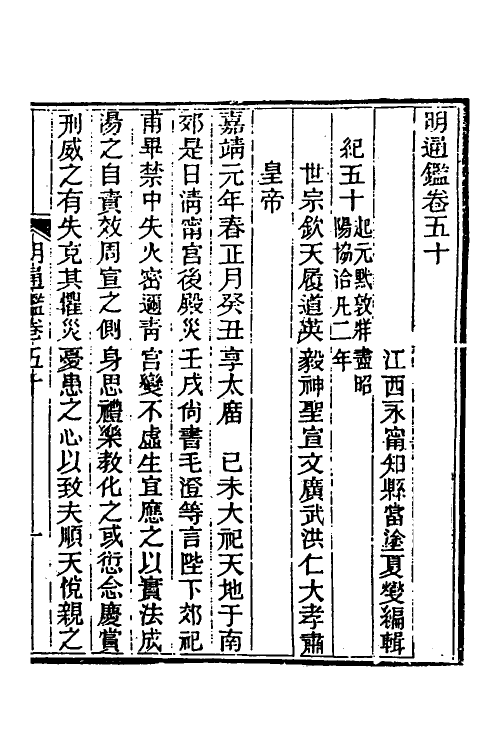 明通鑑卷五十
江西永甯知縣當塗夏燮編輯
紀五十起元黓敦牂盡昭陽協洽凡二年
世宗欽天履道英毅神聖宣文廣武洪仁大孝肅
皇帝
嘉靖元年春正月癸丑享太廟　己未大祀天地于南
郊是日清甯宮後殿災壬戌尙書毛澄等言陛下郊祀
甫畢禁中失火密邇靑宮變不虛生宜應之以實法成
湯之自責效周宣之側身思禮樂敎化之或愆念慶賞
刑威之有失克其懼災憂患之心以致夫順天悅親之
明通鑑卷五十　一